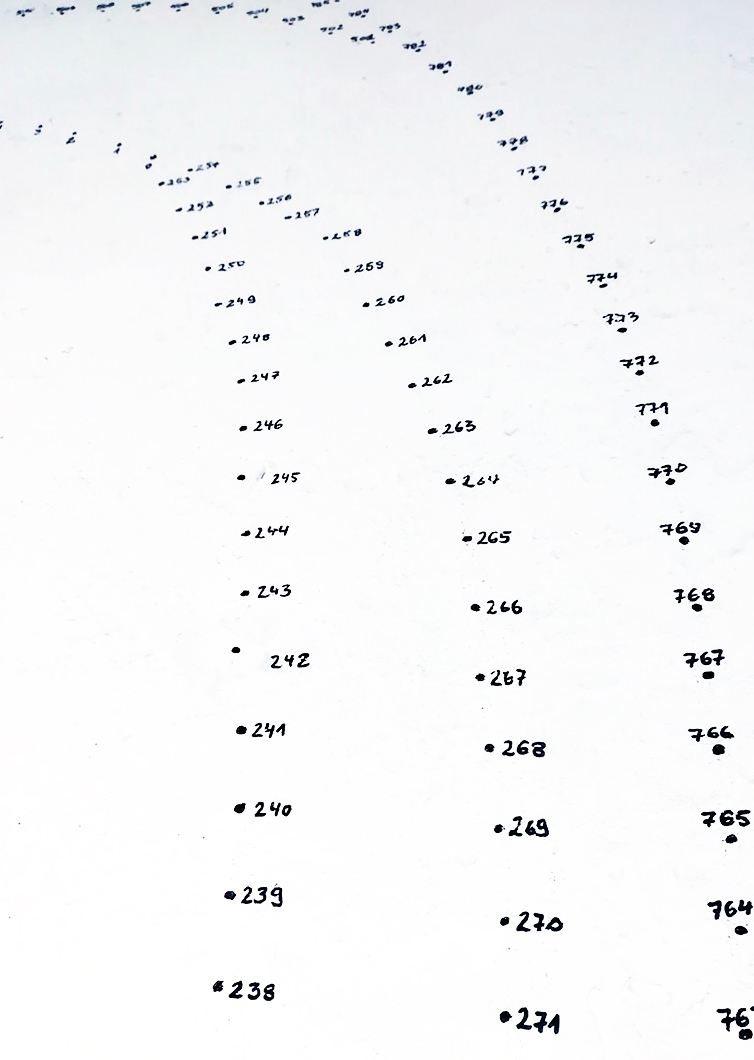 784
783
782
781
780
779
778
777
776
775
774
773
772
771
770
769
768
767
766
765
764
3
2
1
0
253
252
251
250
249
248
247
246
245
244
243
242
241
240
239
238
254
255
256
257
258
259
260
261
262
263
264
265
266
267
268
269
270
271